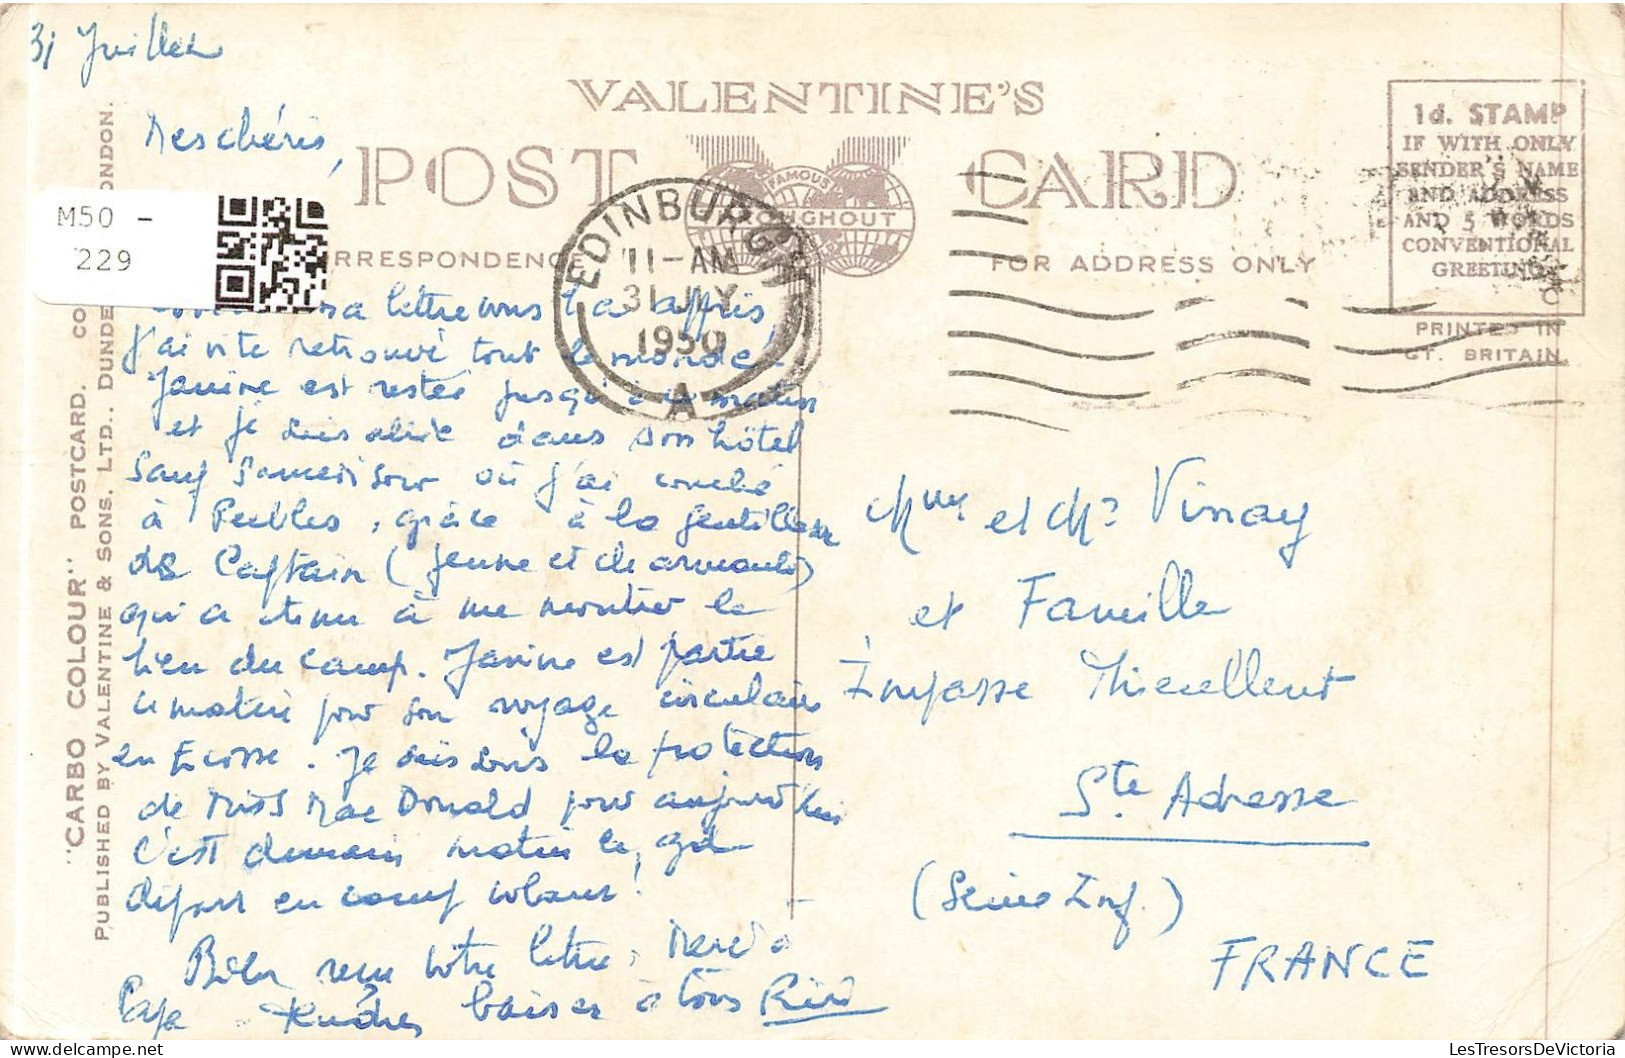 31 Juillet
VALENTINE'S
POST CARD
FAMOUS
THROUGHOUT
CORRESPONDENCE
FOR ADDRESS ONLY
1d. STAMP
IF WITH ONLY
SENDER'S NAME
AND ADDRESS
AND 5 WORDS
CONVENTIONAL
GREETING
PRINTED IN
GT. BRITAIN.
EDINBURGH
11-AM
31 JLY
1950
A
M50 -
229
"CARBO COLOUR" POSTCARD.
PUBLISHED BY VALENTINE & SONS. LTD., DUNDE ONDON.
Mes chéris,
sa lettre vous l'a appris,
j'ai vite retrouvé tout le monde.
Janine est restée jusqu'à ce matin
et je suis allée dans son hôtel
sauf samedi soir où j'ai couché
à Peebles, grâce à la gentillesse
du Captain (jeune et charmant)
qui a tenu à me montrer le
lieu du camp. Janine est partie
ce matin pour son voyage circulaire
en Ecosse. Je suis sous la protection
de Miss Mac Donald pour aujourd'hui
C'est demain matin le gd
départ en camp volant!
Bien reçu votre lettre. Merci à
Papa. Tendres baisers à tous
Mme et Mr Vinay
et Famille
Impasse Thieullent
Ste Adresse
(Seine Inf.)
FRANCE
LesTresorsDeVictoria